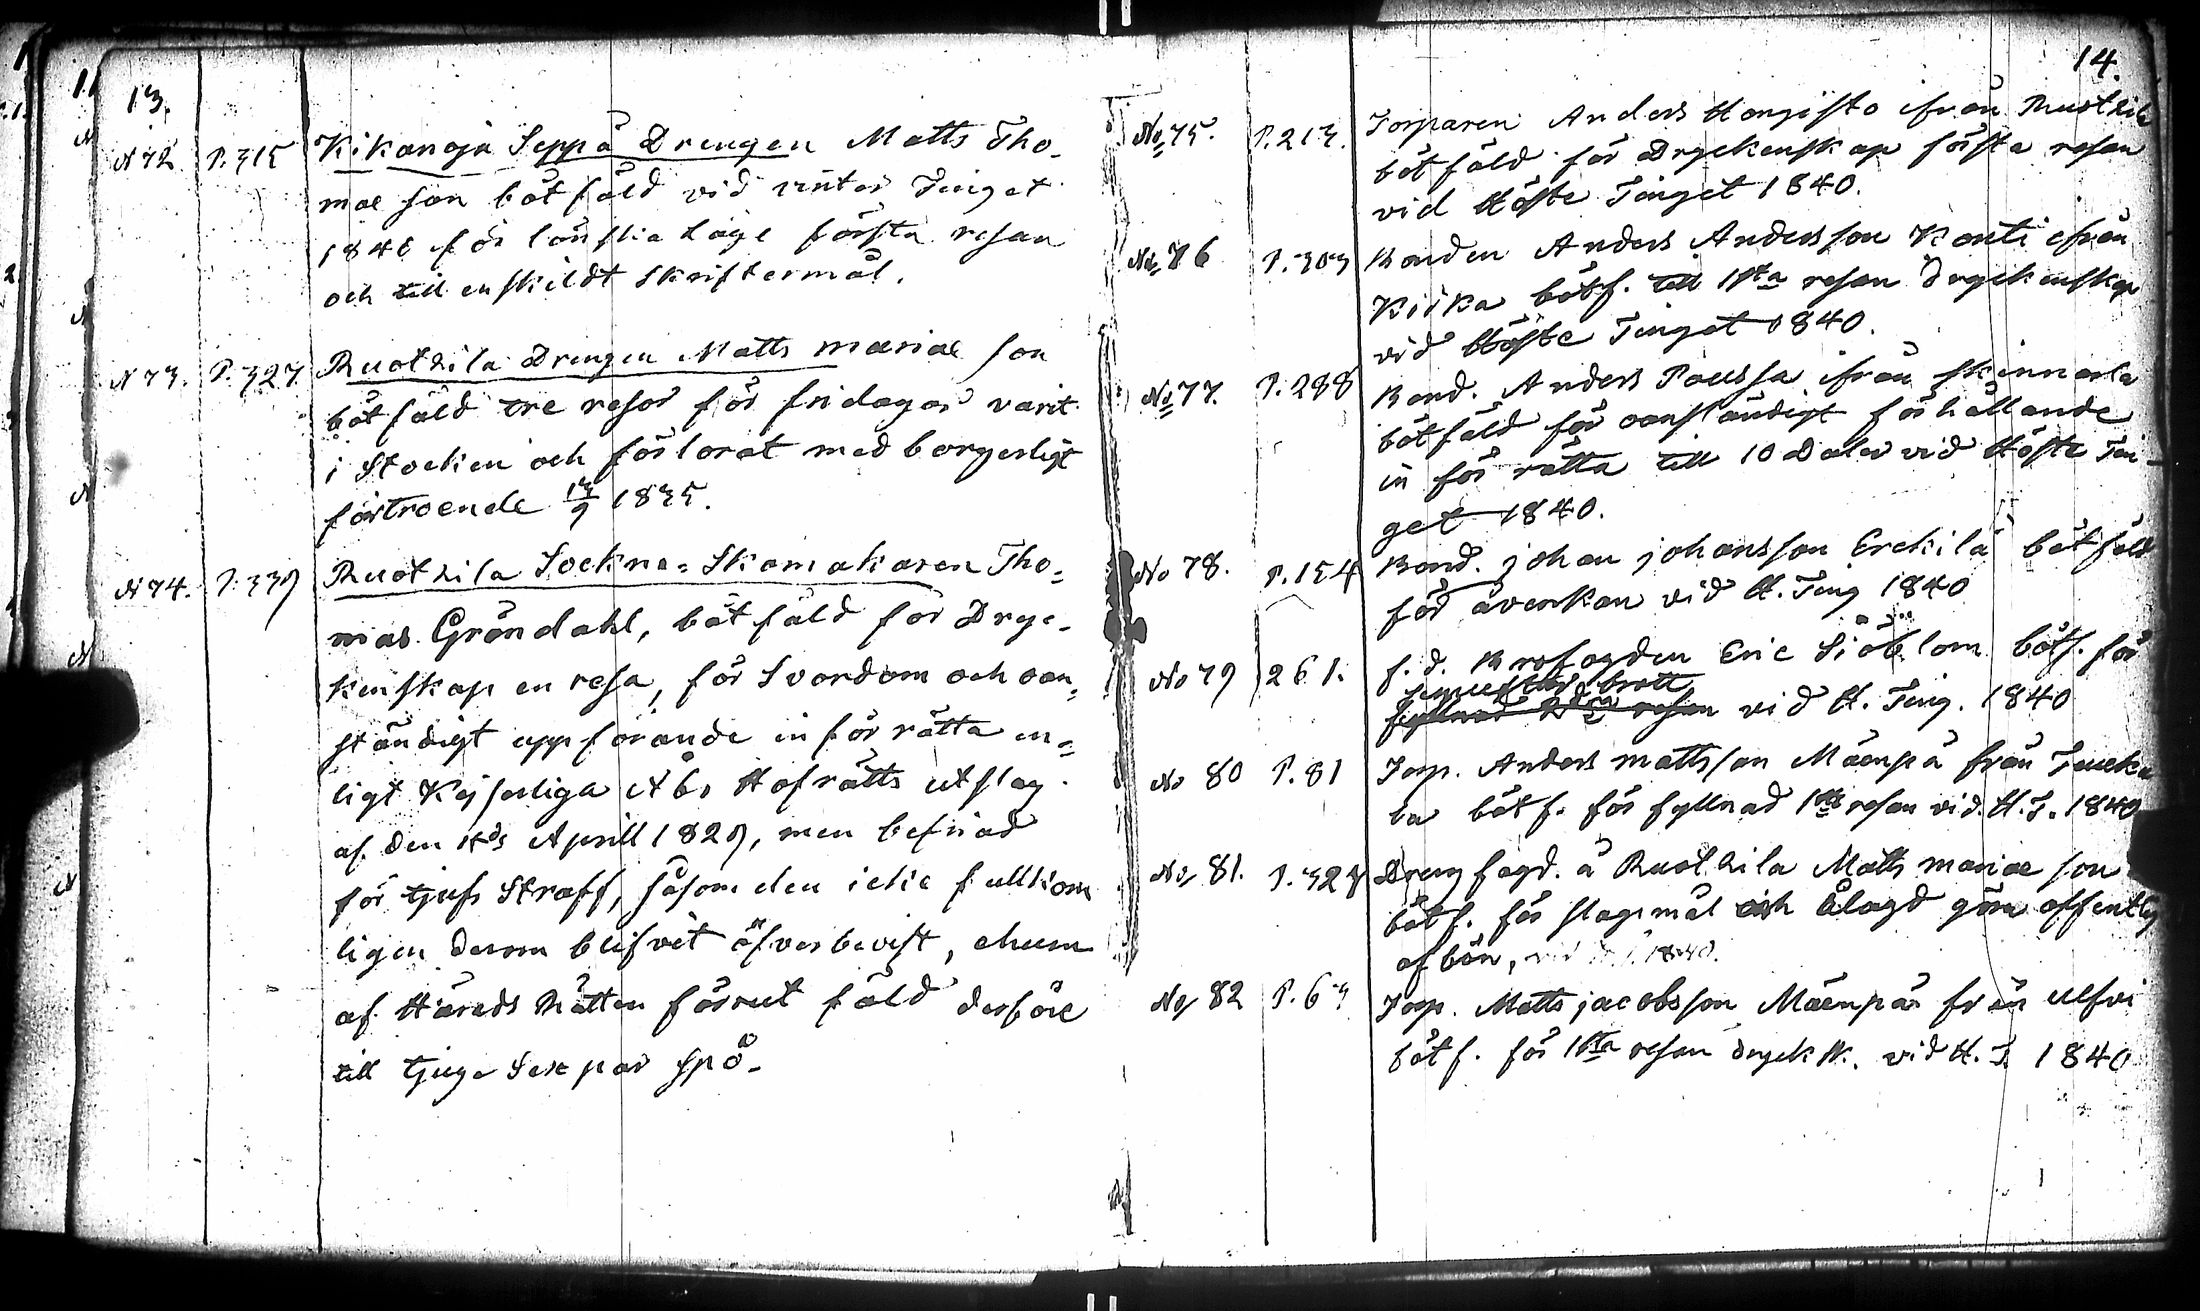 13.
N 72 P. 315 Kikanoja Seppä Drengen Matts Tho-
mae son bötfäld vid vinter Tinget
1840 för lönskaläge första resan
och till enskildt skriftermål.
N 73. P. 327. Ruotzila Drengen Matts mariae son
bötfäld tre resor för fridagar varit
i Stocken och förlorat med borgerligt
förtroende 13/9 1835.
N 74. P. 339 Ruotzila Sockne-Skomakaren Tho-
mas Gröndahl, bötfäld för Dryc-
kenskap en resa, för Svordom och oan-
ständigt uppförande inför rätta en-
ligt Kejserliga Åbo Hofrätts utslag
af den Aprill 1829, men befriad
för tjufs Straff, såsom den icke fullkom
ligen derom blifvit öfverbevist, ehuru
af Härads Rätten förrut fäld derföre
till tjugo sex par spö.
14.
No 75. P. 213. Torparen Anders Hongisto ifrån Ruotzila
bötfäld för Dryckenskap första resan
vid Höste Tinget 1840.
No 76 P. 303 Bonden Anders Andersson Konti ifrån
Kiika bötf. till 1sta resan dryckenskap
vid Höste Tinget 1840.
No 77. P. 288 Bond. Anders Poussa ifrån Skinnarla
bötfäld för oanständigt förhållande
in för rätta till 10 Daler vid Höste Tin-
get 1840.
No 78. P. 154 Bond. johan johansson Erckilä bötfäld
för åverkan vid H. Ting 1840
No 79 261. f. d. Krofogden Eric Siöblom bötf. för
brott
fyllnad 2dra resan vid H. Ting. 1840
No 80 P. 81 Torp. Anders mattsson Mäenpä från
la bötf. för fyllnad 1sta resan vid. H. T. 1840
No 81. P. 327 Dreng fogd. å Ruotzila Matts mariae son
bötf. för slagsmål och ålagd göra offentlig
afbön, vid 1840.
No 82 P. 63 Torp. Matts jacobsson Mäenpää från Ulfvi
bötf. för 1sta resan dryck sk. vid H. T. 1840